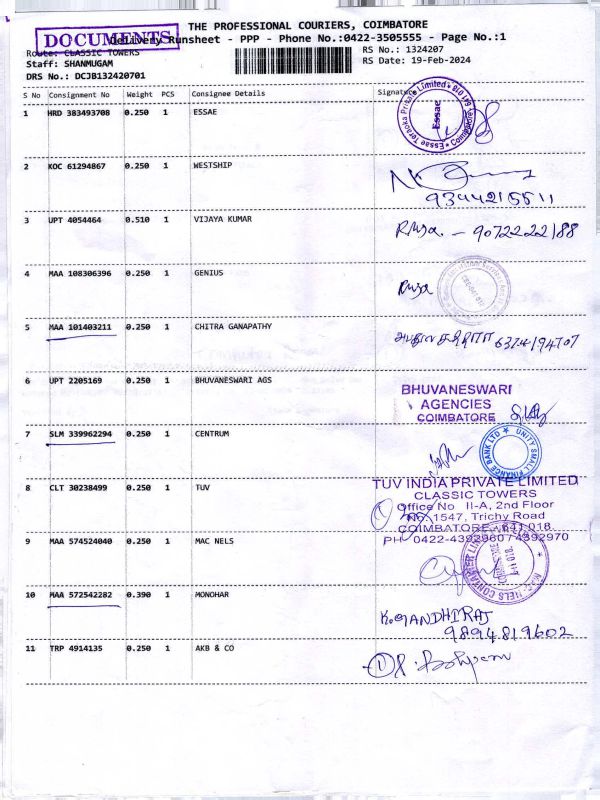 THE PROFESSIONAL COURIERS, COIMBATORE
DOCUMENTS
Delivery Runsheet - PPP - Phone No.:0422-3505555 - Page No.:1
Route: CLASSIC TOWERS
RS No.: 1324207
Staff: SHANMUGAM
RS Date: 19-Feb-2024
DRS No.: DCJB132420701
S No Consignment No Weight PCS Consignee Details Signature
1 HRD 383493708 0.250 1 ESSAE
Essae Teraoka Private Limited
Essae
2 KOC 61294867 0.250 1 WESTSHIP
9344215511
3 UPT 4054464 0.510 1 VIJAYA KUMAR
- 9072222188
4 MAA 108306396 0.250 1 GENIUS
5 MAA 101403211 0.250 1 CHITRA GANAPATHY
6 UPT 2205169 0.250 1 BHUVANESWARI AGS
BHUVANESWARI
AGENCIES
COIMBATORE
7 SLM 339962294 0.250 1 CENTRUM
UNITY SMALL FINANCE BANK LTD
8 CLT 30238499 0.250 1 TUV
TUV INDIA PRIVATE LIMITED
CLASSIC TOWERS
Office No II-A, 2nd Floor
No. 1547, Trichy Road
COIMBATORE - 641 018.
PH: 0422-4392960 / 4392970
9 MAA 574524040 0.250 1 MAC NELS
10 MAA 572542282 0.390 1 MONOHAR
K.GANDHIRAJ
9894819602
11 TRP 4914135 0.250 1 AKB & CO